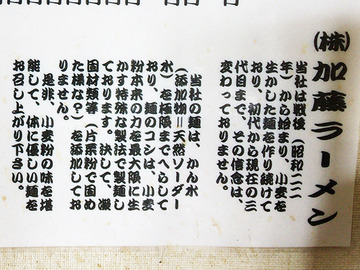 (株)加藤ラーメン
当社は戦後(昭和二二
年)から始まり、小麦を
生かした麺を作り続けて
おり、初代から現在の三
代目まで、その信念は、
変わっておりません。
当社の麺は、かん水
(添加物＝天然ソーダー
水)を極限までへらして
おり、麺のコシは、小麦
粉本来の力を最大限に生
かす特殊な製法で製麺し
ております。決して、凝
固材類等(片栗粉で固め
た様な？)を添加してお
りません。
是非、小麦粉の味を堪
能して、体に優しい麺を
お召し上がり下さい。